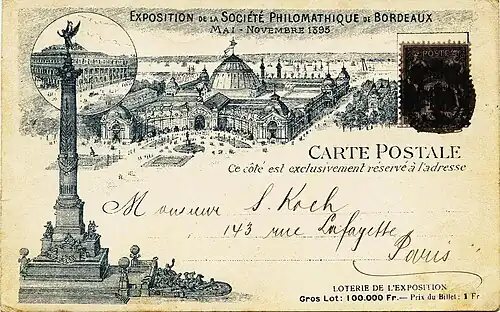 EXPOSITION DE LA SOCIÉTÉ PHILOMATHIQUE DE BORDEAUX
MAI - NOVEMBRE 1895
POSTES
CARTE POSTALE
Ce côté est exclusivement réservé à l'adresse
Monsieur S. Koch
143 rue Lafayette
Paris
LOTERIE DE L'EXPOSITION
Gros Lot: 100.000 Fr. — Prix du Billet: 1 Fr